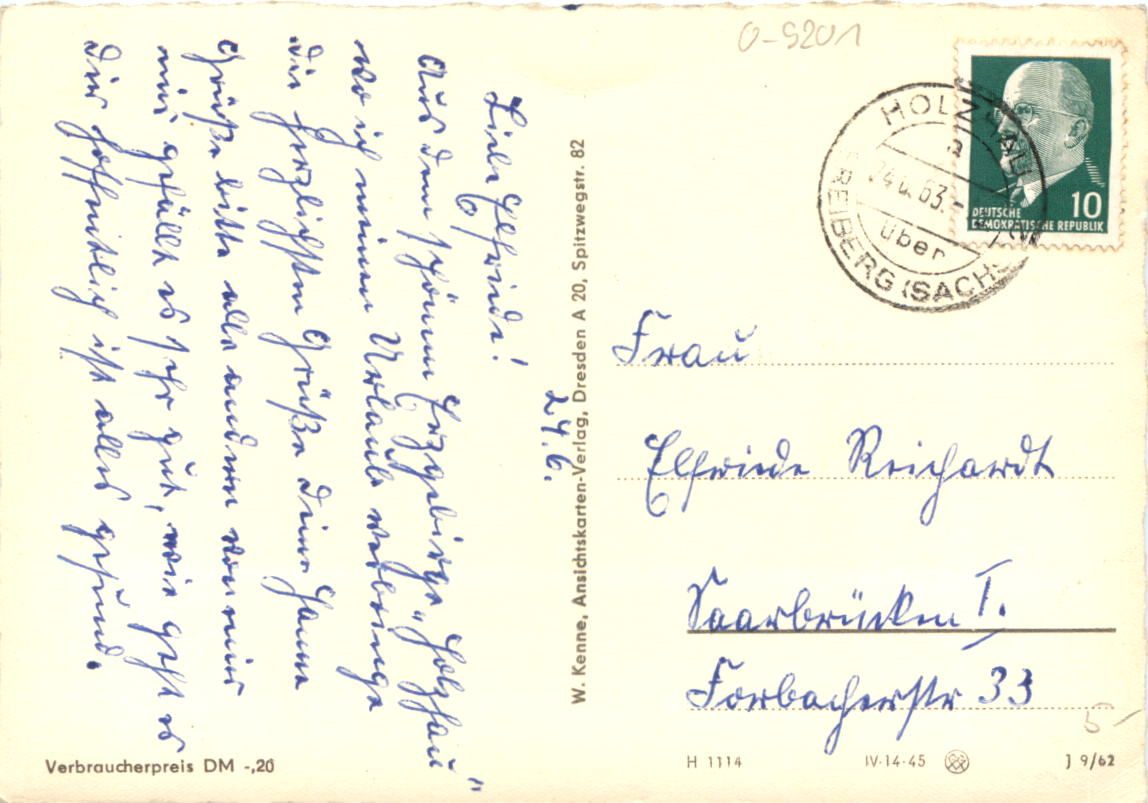 O-9201
HOLZHAU
a
24.6.63.-
über
FREIBERG (SACHS)
10
DEUTSCHE
DEMOKRATISCHE REPUBLIK
24.6.
Liebe Elfriede!
Aus dem schönen Erzgebirge „Holzhau"
wo ich meinen Urlaub verbringe
die herzlichsten Grüße Deine Hanna
Grüße bitte alle andern von mir
mir gefällt es sehr gut, wie geht es
Dir hoffentlich ist alles gesund.
W. Kenne, Ansichtskarten-Verlag, Dresden A 20, Spitzwegstr. 82
Frau
Elfriede Reichardt
Saarbrücken I.
Forbacherstr 33
5-
Verbraucherpreis DM -,20
H 1114
IV-14-45
J 9/62